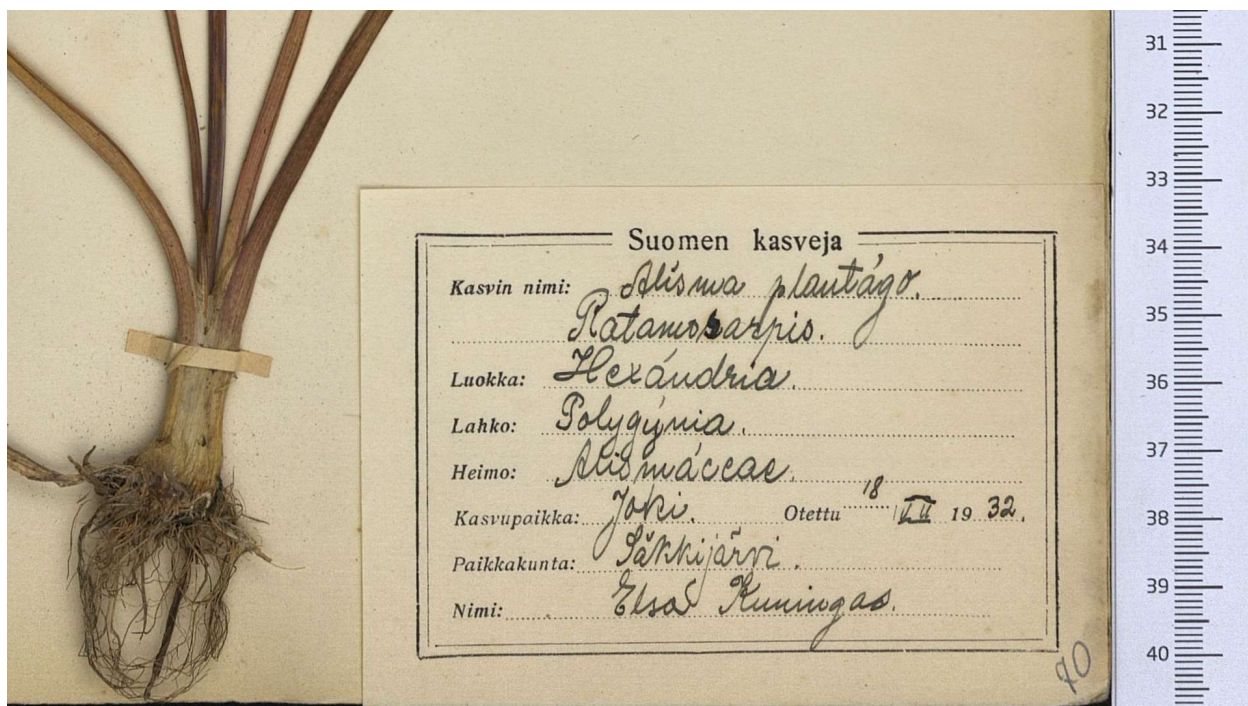 Suomen kasveja
Kasvin nimi: Alisma plantágo.
Ratamosarpio.
Luokka: Hexándria.
Lahko: Polygýnia.
Heimo: Alismáceae.
Kasvupaikka: Joki. Otettu 18 VII 1932.
Paikkakunta: Säkkijärvi.
Nimi: Elsa Kuningas.
70
31
32
33
34
35
36
37
38
39
40